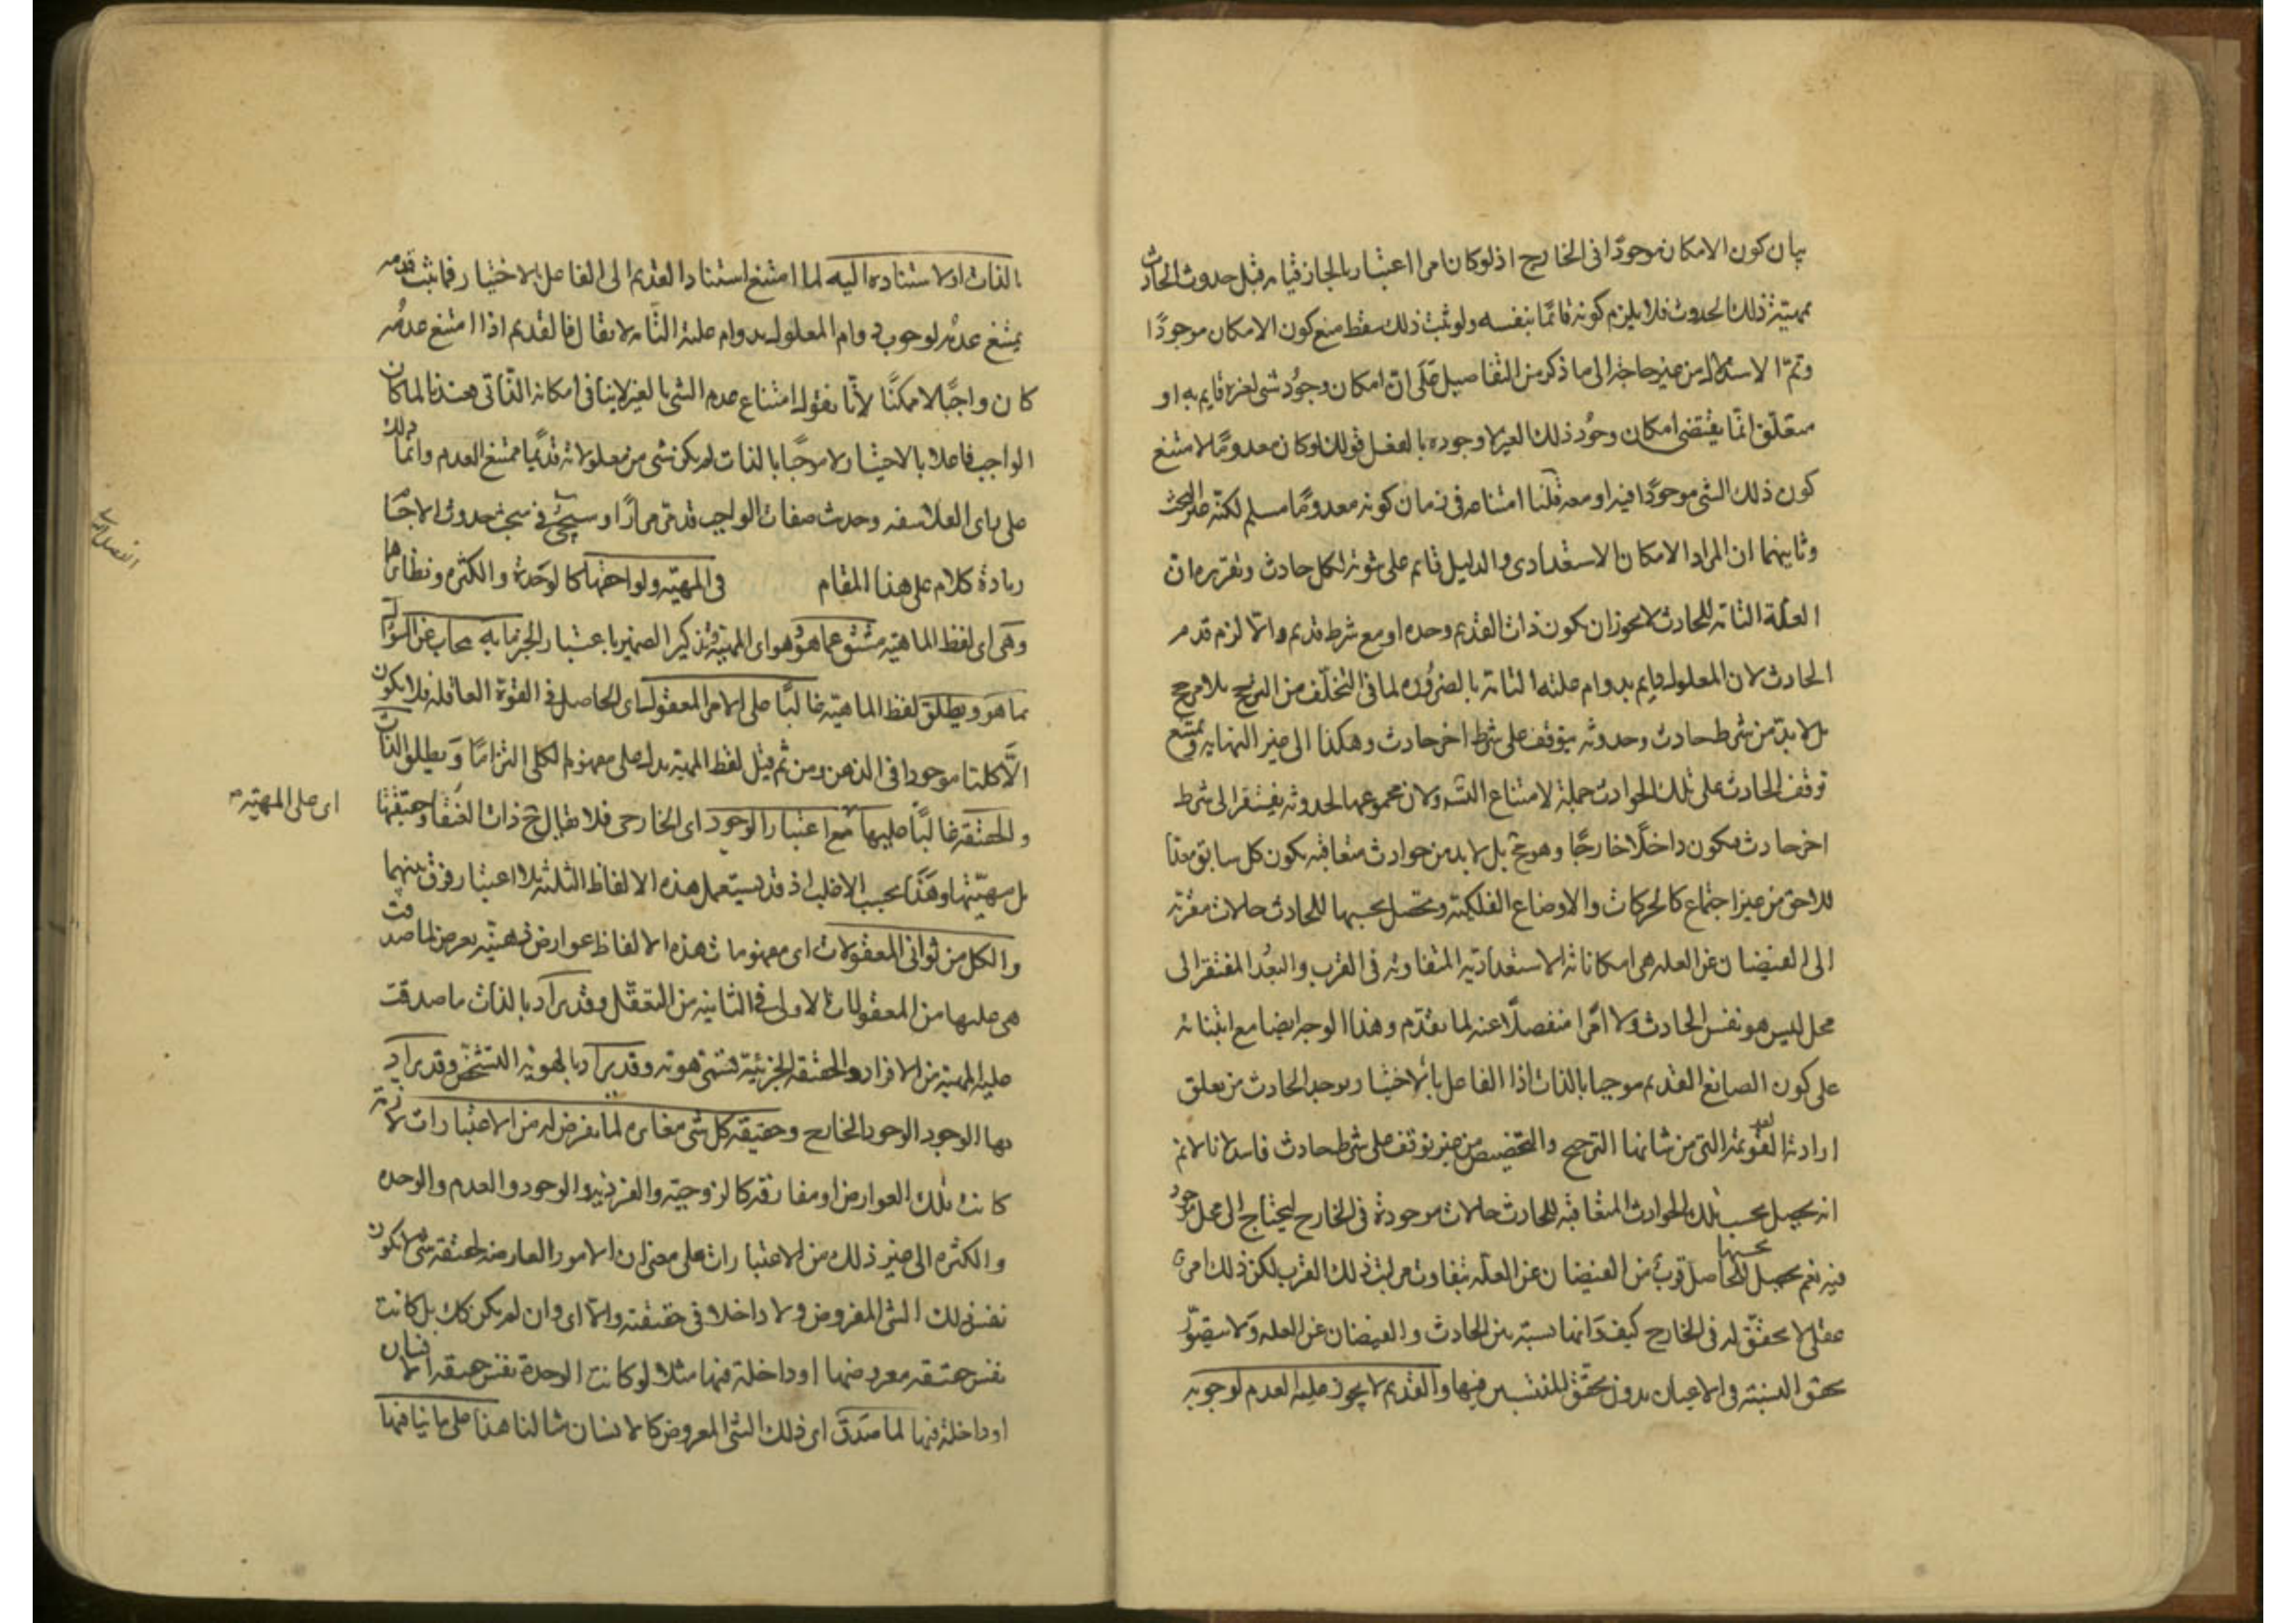 بيان كون الامكان موجودًا فى الخارج اذ لو كان امرا اعتباريا لجاز قيامه قبل حدوث الحادث
بمهيته ذلك الحدوث فلا يلزم كونه قائمًا بنفسه ولو ثبت ذلك سقط منع كون الامكان موجودًا
وتمّ الاستدلال من غير حاجة الى ما ذكر من التفاصيل على انّ امكان وجود شى لغيره قايم به او
متعلق انّما يقتضى امكان وجود ذلك الغير لا وجوده بالفعل قولك لو كان معدومًا لامتنع
كون ذلك الشى موجودًا فيه او معه قلنا امتناعه فى زمان كونه معدومًا مسلم لكنه غير البحث
وثانيهما ان المراد الامكان الاستعدادى والدليل قايم على ثبوته لكل حادث وتقريره ان
العلة التامة للحادث لا يجوز ان يكون ذات القديم وحده او مع شرط قديم والّا لزم قدم
الحادث لان المعلول دايم بدوام علته التامة بالضرورة لما فى التخلّف من الترجيح بلا مرجح
بل لا بدّ من شرط حادث وحدوثه يتوقف على شرط اخر حادث وهكذا الى غير النهايه ويمتنع
توقف الحادث على تلك الحوادث جملة لامتناع التسلسل ولان مجموعها لحدوثه يفتقر الى شرط
اخر حادث فيكون داخلًا خارجًا وهو مح بل لا بد من حوادث متعاقبه يكون كل سابق معدّا
للاحق من غير اجتماع كالحركات والاوضاع الفلكية ويحصل بحسبها للحادث حالات مقربة
الى الفيضان عن العله هى امكاناته الاستعدادية المتفاوته فى القرب والبعد المفتقر الى
محل ليس هو نفس الحادث ولا امرًا منفصلًا عنه لما تقدّم وهذا الوجه ايضا مع ابتنائه
على كون الصانع القديم موجبا بالذات اذ الفاعل بالاختيار يوجد الحادث من تعلق
ارادته القديمة التى من شانها الترجيح والتخصيص من غير توقف على شرط حادث فاسد لانا لا نم
انه يحصل بحسب تلك الحوادث المتعاقبه للحادث حالات موجودة فى الخارج ليحتاج الى محل موجود
فيه نعم يحصل بحسبها للحاصل قرب من الفيضان عن العله يتفاوت مراتب ذلك القرب لكن ذلك امر
عقلى لا تحقق له فى الخارج كيف وانها نسبة بين الحادث والفيضان عن العله ولا يتصوّر
تحقق النسبة فى الاعيان بدون تحقق المنتسبين فيها والقديم لا يجوز عليه العدم لوجوبه
بالذات او لاستناده اليه لما امتنع استناد القديم الى الفاعل بالاختيار فما ثبت قدمه
يمتنع عدمه لوجوب دوام المعلول بدوام علته التامه لا يقال فالقديم اذا امتنع عدمه
كان واجبًا لا ممكنًا لأنّا نقول امتناع عدم الشى بالغير لا ينافى امكانه الذّاتى وعندنا لما كان
الواجب فاعلا بالاختيار لا موجبًا بالذات لم يكن شى من معلولاته قديمًا ممتنع العدم وانّما ذلك
على راى الفلاسفه وحديث صفات الواجب قد مرّ مرارًا وسيجئ فى مبحث حدوث الاجسام
زيادة كلام على هذا المقام فى المهيّه ولواحقها كالوحدة والكثره ونظائرها
وهى اى لفظ الماهيّه مشتق عما هو وهو اى المهية وتذكير الضمير باعتبار الخبر ما به يجاب عن السؤال
بما هو ويطلق لفظ الماهيّه غالبًا على الامر المعقول اى الحاصل فى القوة العاقله فلا يكون
الّا كليا موجودا فى الذهن ومن ثم قيل لفظ المهية يدل على مفهوم الكلى التزامًا ويطلق الذات
والحقيقه غالبًا عليها مع اعتبار الوجود اى الخارجى فلا يقال ح ذات العنقاء وحقيقتها
اى على المهيّه
بل مهيّتها وهذا بحسب الاغلب اذ قد يستعمل هذه الالفاظ الثلثة بلا اعتبار فرق بينهما
والكل من ثوانى المعقولات اى مفهومات هذه الالفاظ عوارض ذهنيّه يعرض لما صدقت
هى عليها من المعقولات الاولى فى الثانيه من التعقّل وقد يراد بالذات ما صدقت
عليه المهية من الافراد والحقيقه الجزئيّة تسمّى هويّة وقد يراد بالهويّة التشخّص وقد يراد
بها الوجود الوجود الخارجى وحقيقه كل شى مغايرة لما يعرض له من الاعتبارات لازمة
كانت تلك العوارض او مفارقه كالزوجيّه والفرديه والوجود والعدم والوحده
والكثره الى غير ذلك من الاعتبارات على معنى ان الامور العارضه لحقيقه شى لا يكون
نفس ذلك الشى المفروض ولا داخلا فى حقيقته والّا اى وان لم يكن كك بل كانت
نفس حقيقه معروضها او داخلة فيها مثلا لو كانت الوحدة نفس حقيقه الانسان
او داخلة فيها لما صدق اى ذلك الشى المعروض كالانسان مثالنا هذا على ما ينافيها